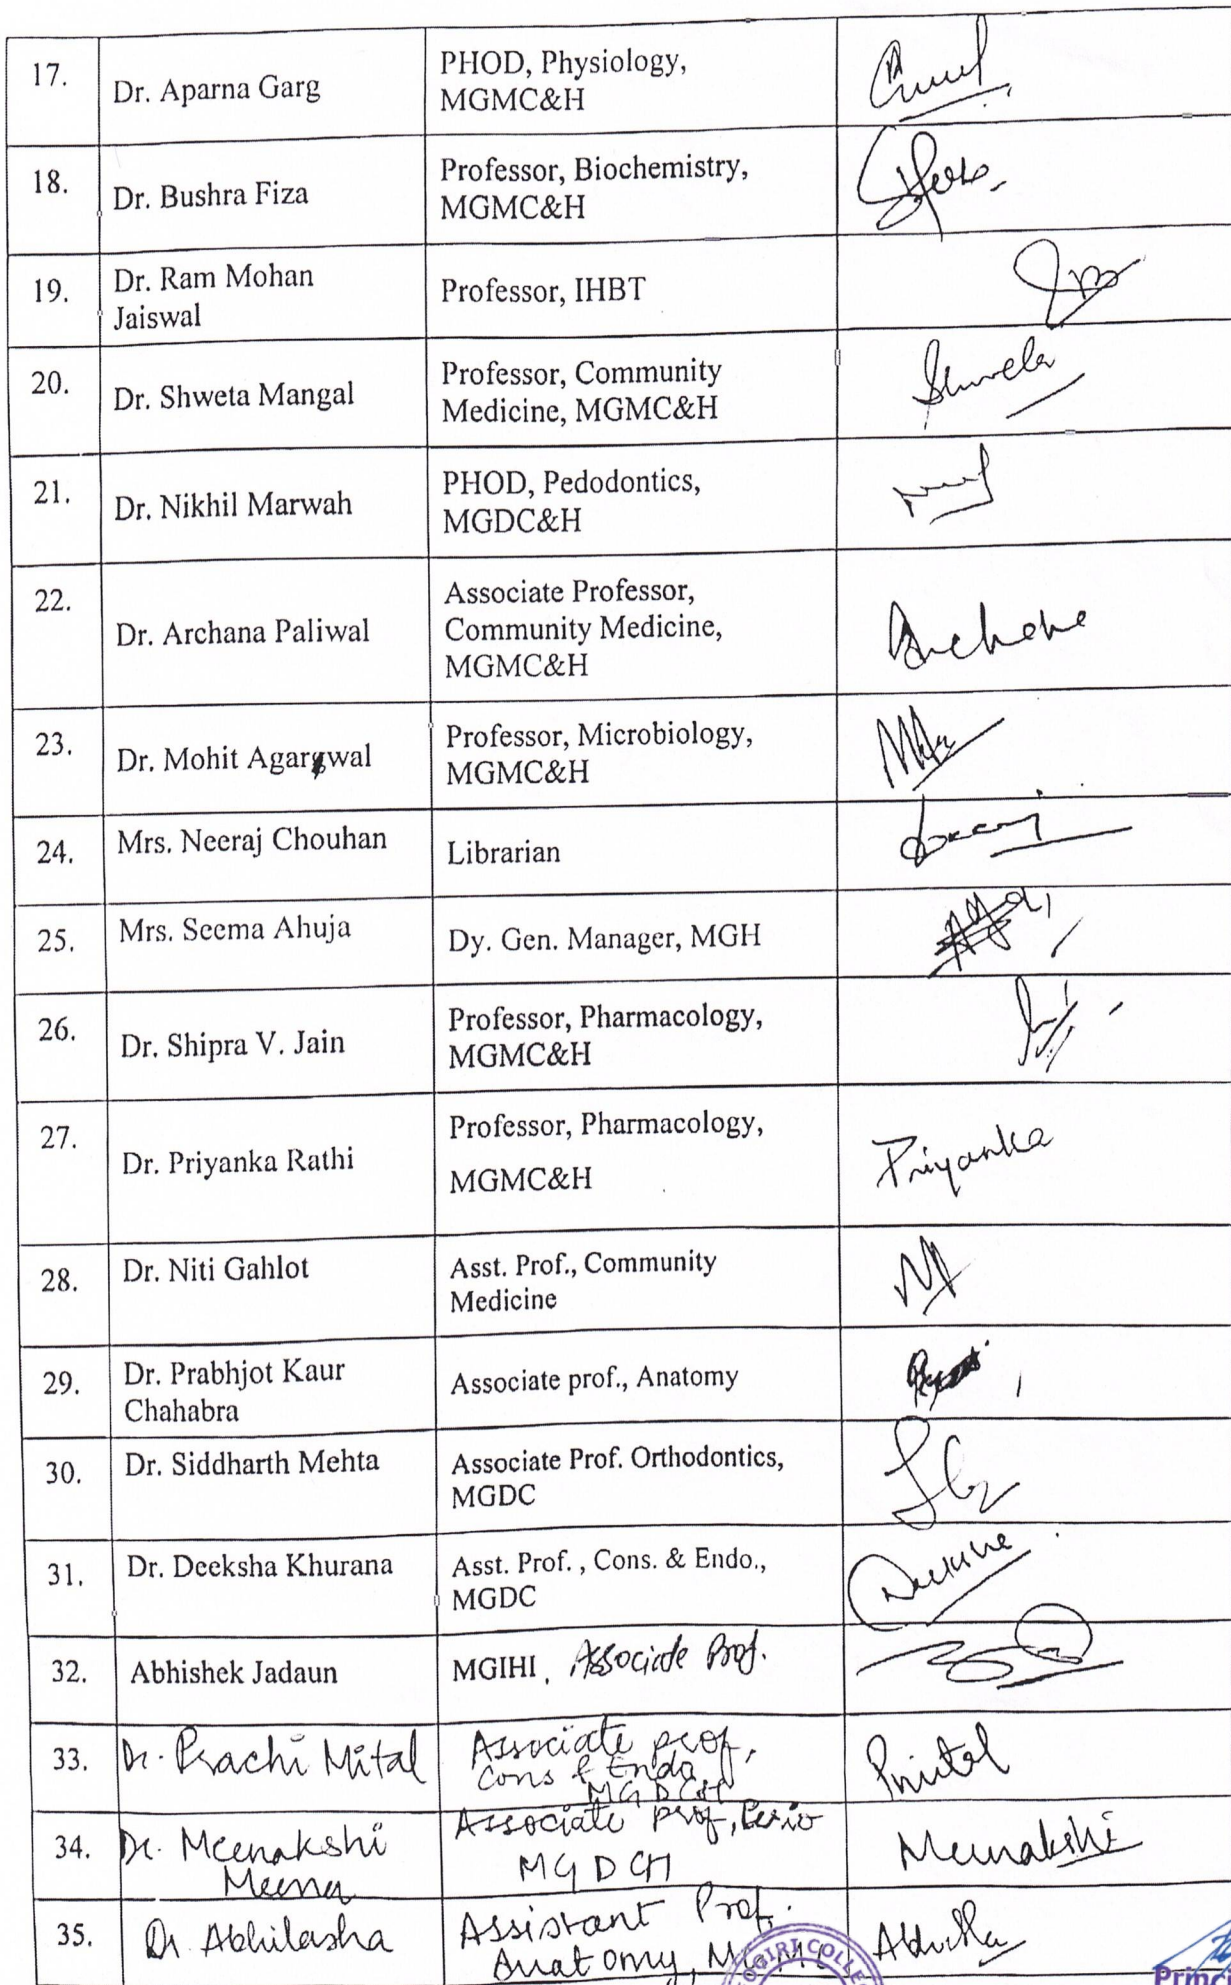 17.
Dr. Aparna Garg
PHOD, Physiology,
MGMC&H
18.
Dr. Bushra Fiza
Professor, Biochemistry,
MGMC&H
19.
Dr. Ram Mohan
Jaiswal
Professor, IHBT
20.
Dr. Shweta Mangal
Professor, Community
Medicine, MGMC&H
Shweta
21.
Dr. Nikhil Marwah
PHOD, Pedodontics,
MGDC&H
22.
Dr. Archana Paliwal
Associate Professor,
Community Medicine,
MGMC&H
Archana
23.
Dr. Mohit Agarwal
Professor, Microbiology,
MGMC&H
24.
Mrs. Neeraj Chouhan
Librarian
25.
Mrs. Seema Ahuja
Dy. Gen. Manager, MGH
26.
Dr. Shipra V. Jain
Professor, Pharmacology,
MGMC&H
27.
Dr. Priyanka Rathi
Professor, Pharmacology,
MGMC&H
Priyanka
28.
Dr. Niti Gahlot
Asst. Prof., Community
Medicine
29.
Dr. Prabhjot Kaur
Chahabra
Associate prof., Anatomy
30.
Dr. Siddharth Mehta
Associate Prof. Orthodontics,
MGDC
31.
Dr. Deeksha Khurana
Asst. Prof. , Cons. & Endo.,
MGDC
32.
Abhishek Jadaun
MGIHI, Associate Prof.
33.
Dr. Prachi Mital
Associate prof,
Cons & Endo
MGDCH
Pmital
34.
Dr. Meenakshi
Meena
Associate prof, Perio
MGDCH
Meenakshi
35.
Dr Abhilasha
Assistant Prof.
Anatomy,